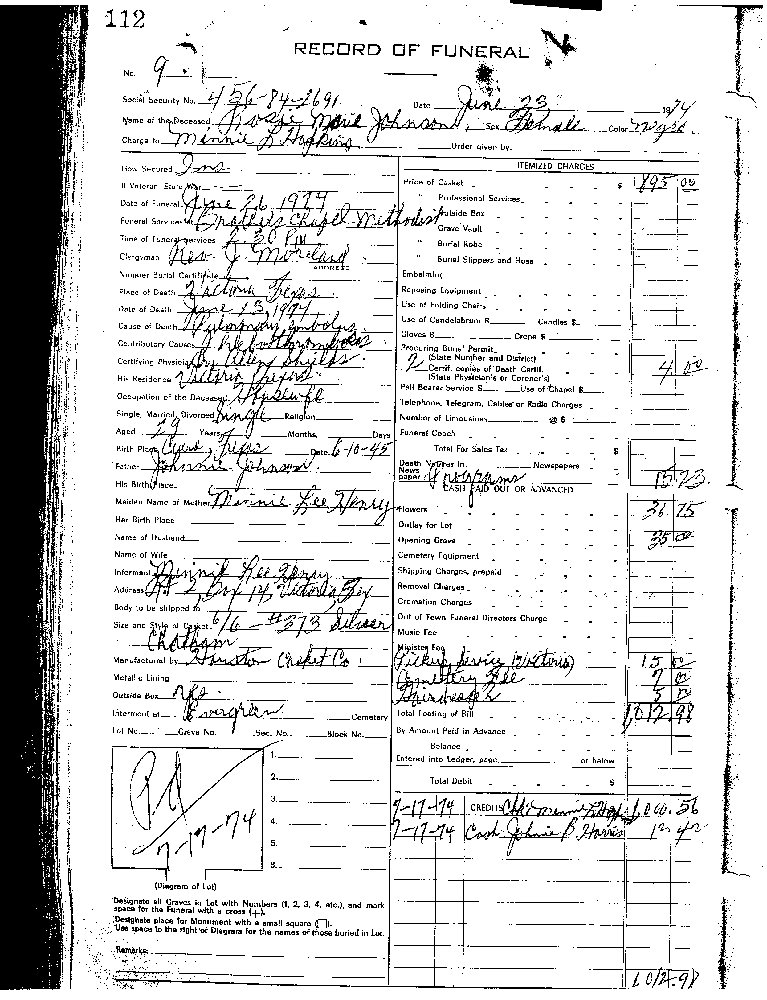 112
RECORD OF FUNERAL
No. 9
Social Security No. 456-84-2691 Date June 23 1974
Name of the Deceased Rosie Marie Johnson, Sex Female Color
Charge to Minnie L Hopkins Order given by
How Secured Ins
If Veteran State War
Date of Funeral June 26 1974
Funeral Services at Chapel Methodist
Time of Funeral Services 2:30 PM
Clergyman Rev. J. Moreland
ADDRESS
Number Burial Certificate
Place of Death Victoria Texas
Date of Death June 23, 1974
Cause of Death Pulmonary Embolus
Contributory Causes
Certifying Physician Dr. Allen Shields
His Residence Victoria Texas
Occupation of the Deceased Housewife
Single, Married, Divorced Single Religion
Aged 29 Years Months, Days
Birth Place Texas Date 6-10-45
Father Johnnie Johnson
His Birth Place
Maiden Name of Mother Minnie Lee Henry
Her Birth Place
Name of Husband
Name of Wife
Informant Minnie Lee
Address Rt 2, Box 14, Victoria, Tex
Body to be shipped to
Size and Style of Casket 6/6 - #373 Silver
Chatham
Manufactured by Houston Casket Co.
Metallic Lining
Outside Box yes
Interment at Evergreen Cemetery
Lot No. Grave No. Sec. No. Block No.
Pd
7-17-74
1.
2.
3.
4.
5.
6.
(Diagram of Lot)
Designate all Graves in Lot with Numbers (1, 2, 3, 4, etc.), and mark
space for the Funeral with a cross (+).
Designate place for Monument with a small square (□).
Use space to the right of Diagram for the names of those buried in Lot.
Remarks:
ITEMIZED CHARGES
Price of Casket $ 895 00
Professional Services
" Outside Box
" Grave Vault
" Burial Robe
" Burial Slippers and Hose
Embalming
Reposing Equipment
Use of Folding Chairs
Use of Candelabrum $ Candles $
Gloves $ Crepe $
Procuring Burial Permit
(State Number and District)
2 Certif. copies of Death Certif. 4 00
(State Physician's or Coroner's)
Pall Bearer Service $ Use of Chapel $
Telephone, Telegram, Cables or Radio Charges
Number of Limousines @ $
Funeral Coach
Total For Sales Tax $
Death Notices In Newspapers
News
paper: Programs 15 23
CASH PAID OUT OR ADVANCED
Flowers 36 75
Outlay for Lot
Opening Grave 35 00
Cemetery Equipment
Shipping Charges, prepaid
Removal Charges
Cremation Charges
Out of Town Funeral Directors Charge
Music Fee
Minister Fee
Pickup Service (Victoria) 15 00
Cemetery Fee 7 00
5 00
Total Footing of Bill 1,012.98
By Amount Paid in Advance
Balance
Entered into Ledger, page or below
Total Debit $
7-17-74 CREDITS 1,000.56
7-17-74 Cash Johnie B. Harris 12 42
1012.98